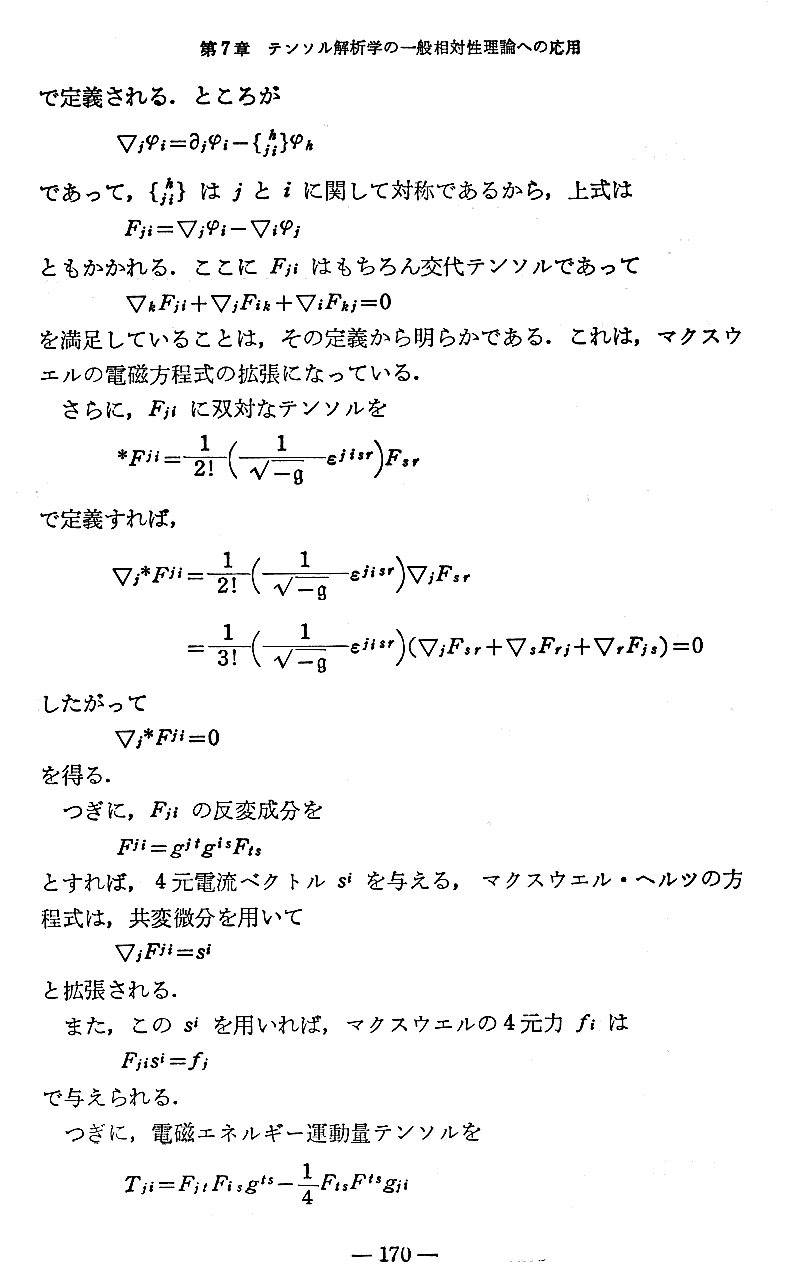 第7章 テンソル解析学の一般相対性理論への応用
で定義される．ところが
∇ⱼφᵢ=∂ⱼφᵢ−{ʰⱼᵢ}φₕ
であって，{ʰⱼᵢ} は j と i に関して対称であるから，上式は
Fⱼᵢ=∇ⱼφᵢ−∇ᵢφⱼ
ともかかれる．ここに Fⱼᵢ はもちろん交代テンソルであって
∇ₖFⱼᵢ+∇ⱼFᵢₖ+∇ᵢFₖⱼ=0
を満足していることは，その定義から明らかである．これは，マクスウ
エルの電磁方程式の拡張になっている．
さらに，Fⱼᵢ に双対なテンソルを
*Fʲⁱ=1/2!(1/√−g εʲⁱˢʳ)Fₛᵣ
で定義すれば，
∇ⱼ*Fʲⁱ=1/2!(1/√−g εʲⁱˢʳ)∇ⱼFₛᵣ
=1/3!(1/√−g εʲⁱˢʳ)(∇ⱼFₛᵣ+∇ₛFᵣⱼ+∇ᵣFⱼₛ)=0
したがって
∇ⱼ*Fʲⁱ=0
を得る．
つぎに，Fⱼᵢ の反変成分を
Fʲⁱ=gʲᵗgⁱˢFₜₛ
とすれば，4元電流ベクトル sⁱ を与える，マクスウエル・ヘルツの方
程式は，共変微分を用いて
∇ⱼFʲⁱ=sⁱ
と拡張される．
また，この sⁱ を用いれば，マクスウエルの4元力 fᵢ は
Fⱼᵢsⁱ=fⱼ
で与えられる．
つぎに，電磁エネルギー運動量テンソルを
Tⱼᵢ=FⱼₜFᵢₛgᵗˢ−1/4FₜₛFᵗˢgⱼᵢ
— 170 —